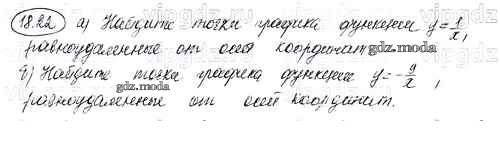 18.22 а) Найдите точки графика функции y=1/x,
равноудаленные от осей координат gdz.moda
б) Найдите точки графика функции y=-9/x,
равноудаленные от осей координат.